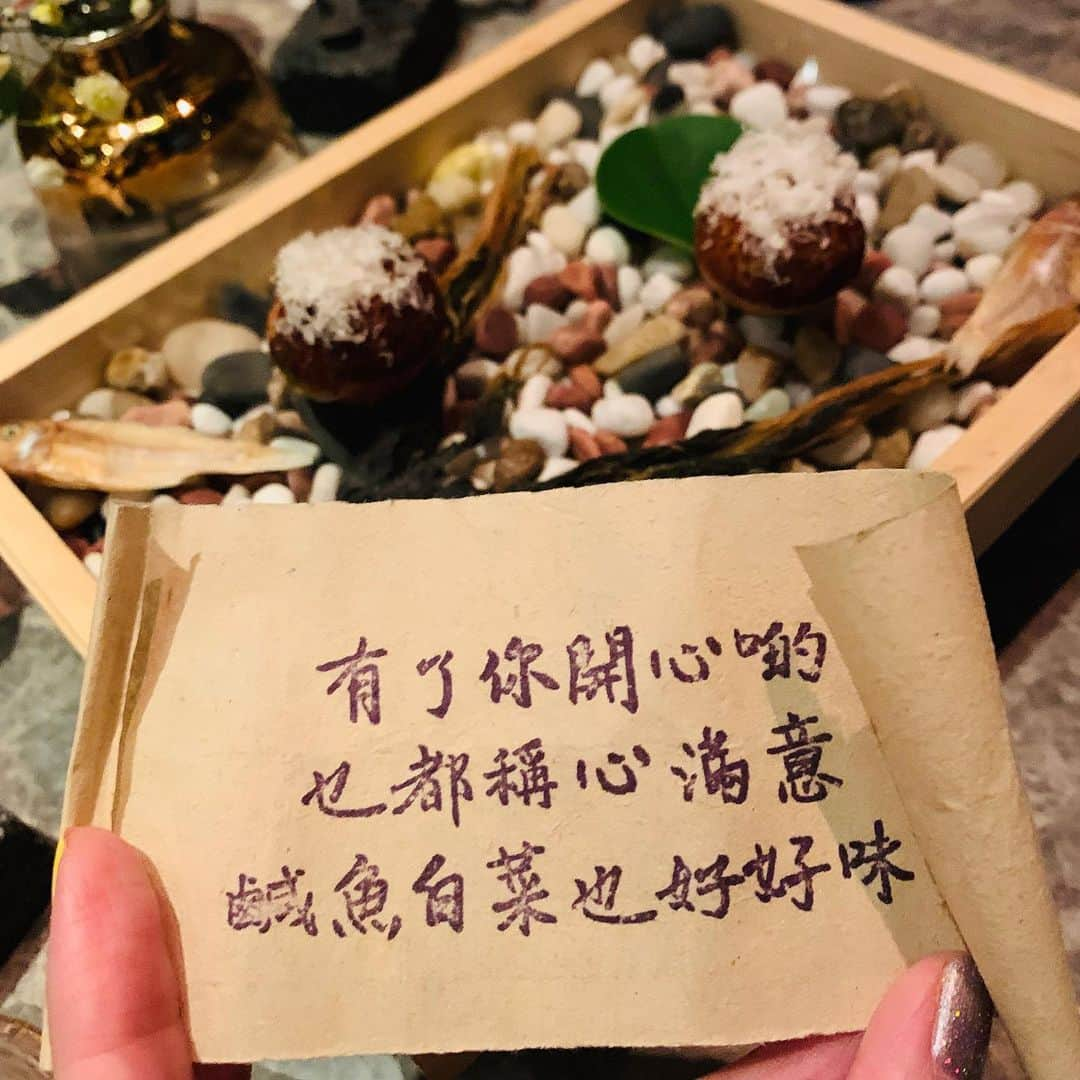 有了你開心啲
也都稱心滿意
鹹魚白菜也好好味